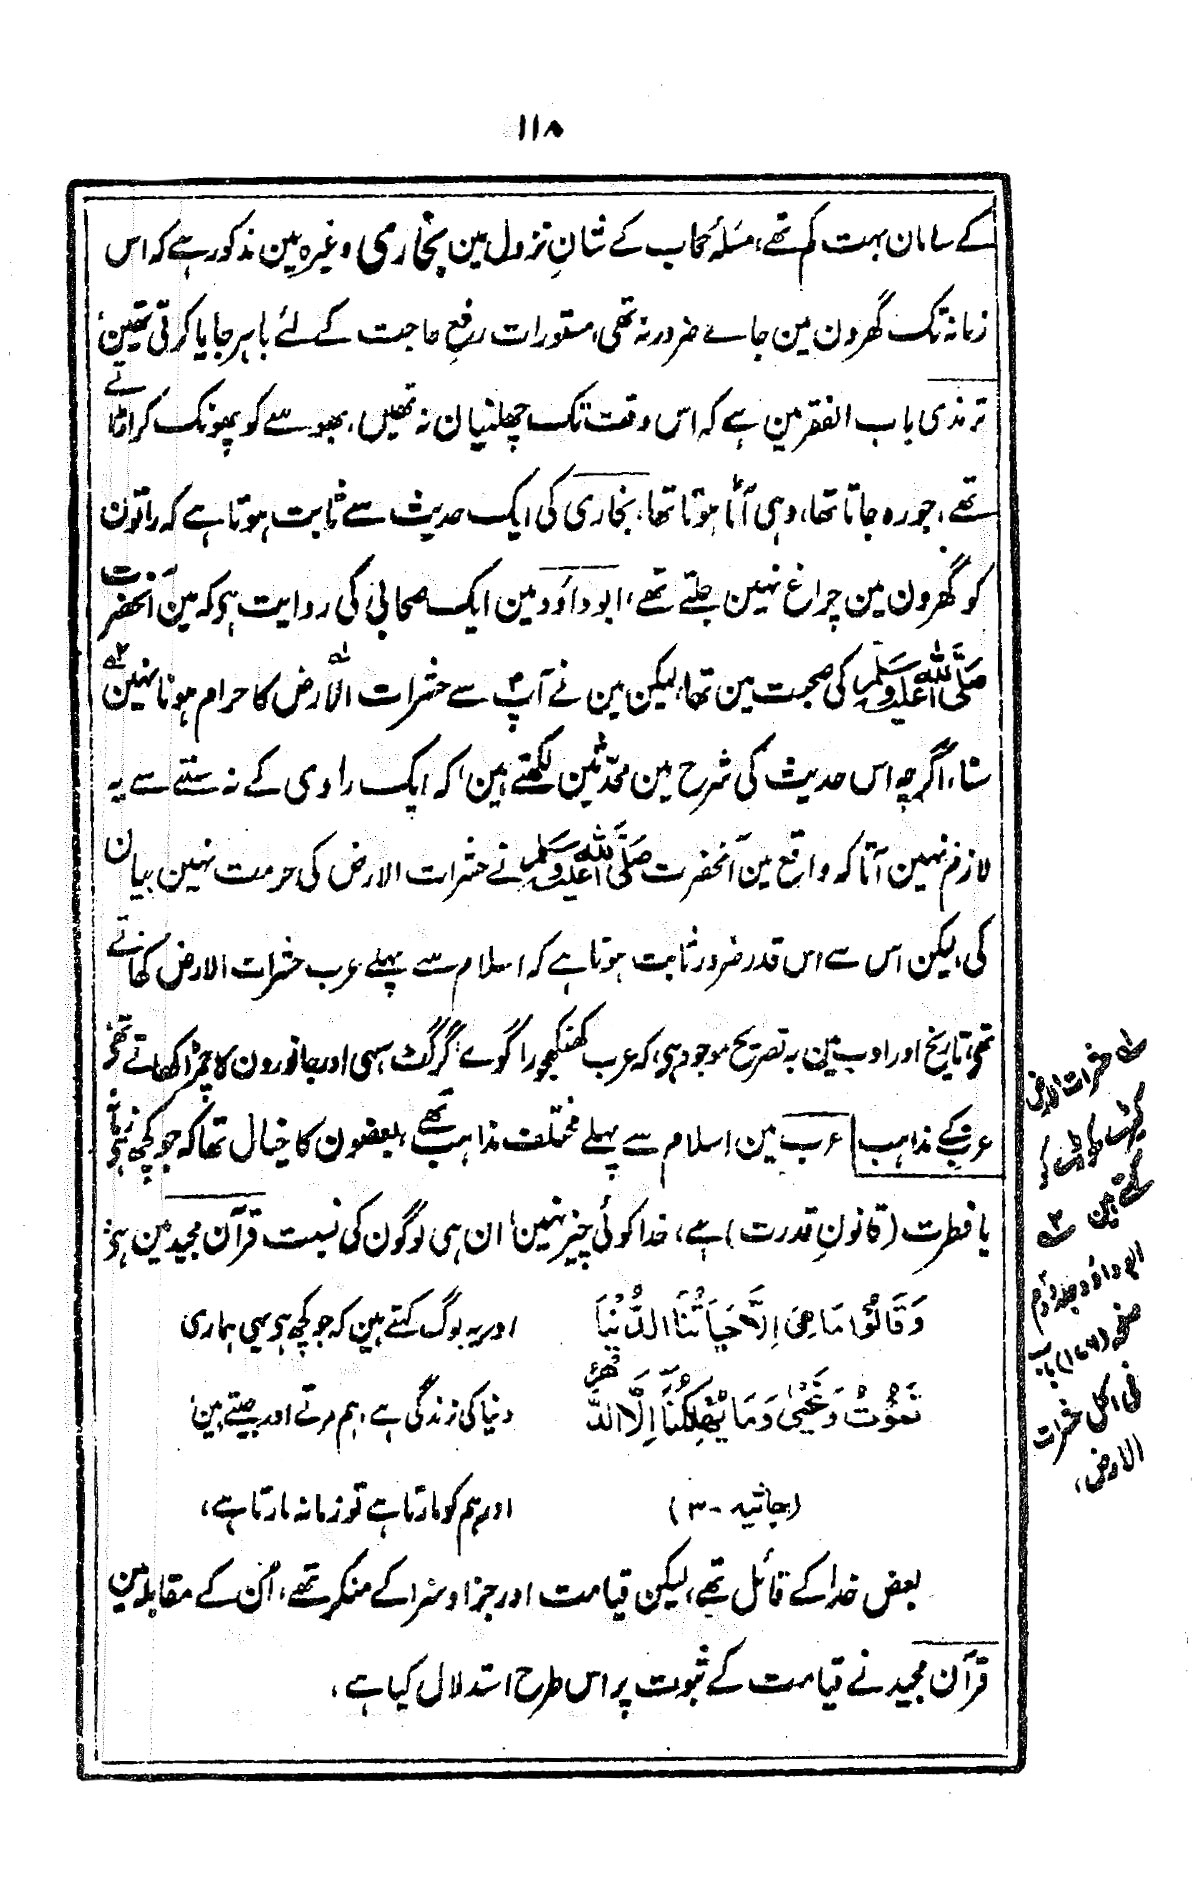 ۱۱۸
کے سامان بہت کم تھے، مسئلہ حجاب کے شانِ نزول مین بخاری وغیرہ مین مذکور ہے کہ اس
زمانہ تک گھرون مین جاے ضرور نہ تھی، مستورات رفعِ حاجت کے لئے باہر جایا کرتی تھین،
ترمذی باب الفقر مین ہے کہ اس وقت تک چھلنیان نہ تھیں، بھوسے کو پھونک کر اڑاتے
تھے، جو رہ جاتا تھا، وہی آٹا ہوتا تھا، بخاری کی ایک حدیث سے ثابت ہوتا ہے کہ راتون
کو گھرون مین چراغ نہین جلتے تھے، ابوداؤد مین ایک صحابی کی روایت ہو کہ مین آنحضرت
صَلَّی اللہ عَلَیْہِ وَسَلَّم کی صحبت مین تھا، لیکن مین نے آپ سے حشرات الارض ؎۱ کا حرام ہونا نہین ؎۲
سنا، اگرچہ اس حدیث کی شرح مین محدّثین لکھتے ہین، کہ ایک راوی کے نہ سننے سے یہ
لازم نہین آتا کہ واقع مین آنحضرت صَلَّی اللہ عَلَیْہِ وَسَلَّم نے حشرات الارض کی حرمت نہین بیان
کی، لیکن اس سے اس قدر ضرور ثابت ہوتا ہے کہ اسلام سے پہلے عرب حشرات الارض کھاتے
تھے، تاریخ اور ادب مین بہ تصریح موجود ہو، کہ عرب کھنکھجورا گوے، گرگٹ سہی اور جانورون کا چمڑا کھاتے تھے،
عرب کے مذاہب عرب مین اسلام سے پہلے مختلف مذاہب تھے، بعضون کا خیال تھا کہ جو کچھ ہو زمانہ
یا فطرت (قانونِ قدرت) ہے، خدا کوئی چیز نہین، ان ہی لوگون کی نسبت قرآن مجید مین ہے،
وَقَالُوْا مَا هِیَ اِلَّا حَیَاتُنَا الدُّنْیَا اور یہ لوگ کہتے ہین کہ جو کچھ ہو یہی ہماری
نَمُوْتُ وَنَحْیٰی وَمَا یُهْلِكُنَا اِلَّا الدَّهْرُ دنیا کی زندگی ہے، ہم مرتے اور جیتے ہین،
(جاثیہ - ۳) اور ہم کو مارتا ہے تو زمانہ مارتا ہے،
بعض خدا کے قائل تھے، لیکن قیامت اور جزا و سزا کے منکر تھے، اُن کے مقابلہ مین
قرآن مجید نے قیامت کے ثبوت پر اس طرح استدلال کیا ہے،
؎۱ حشرات الارض
کیڑے مکوڑے کو
کہتے ہین ؎۲
ابوداؤد جلد دوم
صفحہ (۱۷۶) باب
فی اکل حشرات
الارض،